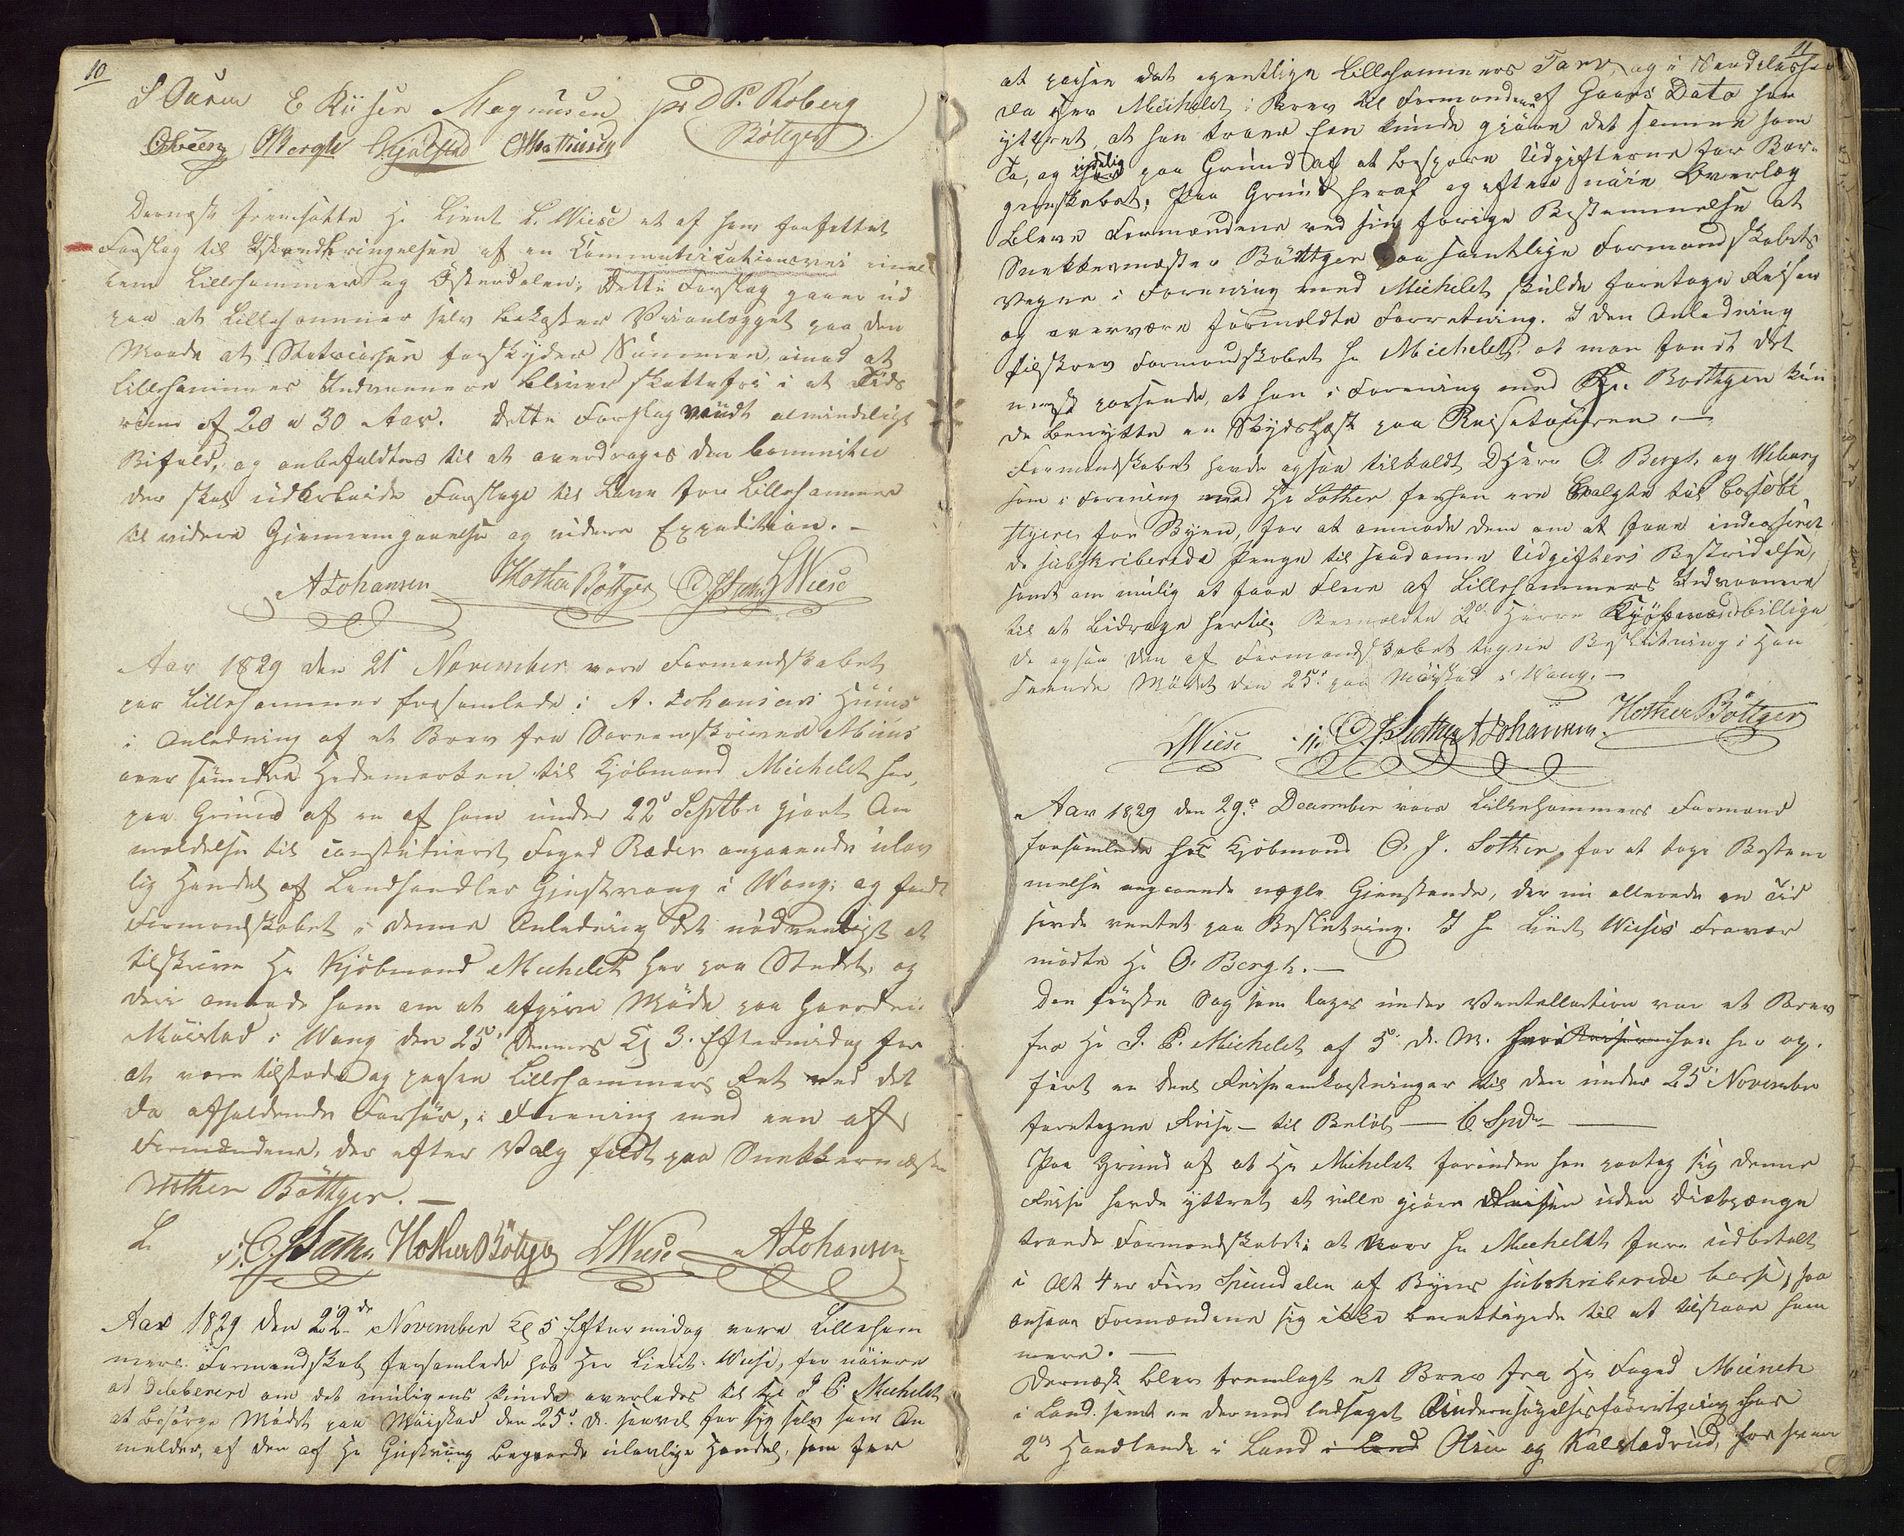 10
S Owren E Riiser Magnussen pr D P. Roberg
OWiborg OBergh Skjølstad OMathiesen Böttger
Dernæst fremsatte Hr Lieut L. Wiese et af ham forfattet
Forslag til Istandbringelsen af en Communicationsvei imel
lem Lillehammer og Østerdalen; Dette Forslag gaaer ud
paa at Lillehammer selv bekoster Veianlægget paa den
Maade at Statscassen forskyder Summen, imod at
Lillehammers Indvaanere bliver skattefri i et Tids
rum af 20 a 30 Aar. Dette Forslag vandt almindeligt
Bifald, og anbefaldtes til at overdrages den Committee
der skal udarbeide Forslage til Love for Lillehammer
til videre Giennemgaaelse og videre Expedition. –
AJohansen Hother Böttger O J Sother LWiese
Aar 1829 den 21 November vare Formandskabet
paa Lillehammer forsamlede i A. Johansens Huus
i Anledning af et Brev fra Sorenskriver Mbuus
over søndre Hedemarken til Kjøbmand Michelet her,
paa Grund af en af ham under 22d Septbr gjort An
meldelse til constitueret Foged Ræder angaaende ulov
lig Handel af Landhandler Gjestvang i Wang; og fandt
Formandskabet i denne Anledning det nødvendigt at
tilskrive Hr Kjøbmand Michelet her paa Stedet, og
deri anmode ham om at afgive Møde paa Gaarden
Møistad i Wang den 25d dennes Kl 3. Eftermidag for
at være tilstede og passe Lillehammers Ret ved det
da afholdende Forhør, i Forening med een af
Formændene, der efter Valg faldt paa Snekkermester
Hother Böttger. –
L.
O J Sother Hother Böttger LWiese AJohansen
Aar 1829 den 22de November Kl 5 Eftermidag vare Lilleham
mers Formandskab forsamlede hos Her Lieut. Wiese, for nøiere
at deleberere om det muligens kunde overlades til Hr J P. Michelet
at besørge Mødet paa Møistad den 25d d. saavel for sig selv som An
melder, af den af Hr Gjestvang begaaede ulovlige Handel, som for
11
at passe det egentlige Lillehammers Tarv, og i Henseelse
da Her Michelet i Brev til Formændene af Gaars Dato har
yttret, at han troer han kunde gjøre det samme som
To, og især paa Grund af at bespare Udgifterne for Bor-
gerskabet; Paa Grund heraf og efter nøie Overlæg
bleve Formændene ved sin forrige Bestemmelse at
Snekkermester Böttger paa samtlige Formandskabets
Vegne i Forening med Michelet skulde foretage Reisen
og overvære formeldte Forretning. I den Anledning
tilskrev Formandskabet Hr Michelet at man fandt det
mest passende, at han i Forening med Hr. Bøttger kun
de benytte en Skydshest paa Reisetouren. –
Formandskabet havde ogsaa tilkaldt DHerr O. Bergh, og Wiborg
som i Forening med Hr Sother forhen ere valgte til Casebe
styrer for Byen, for at anmode dem om at faae indcasseret
de subskriberede Penge til saadanne Udgifters Bestridelse,
samt om mulig at faae flere af Lillehammers Indvaanere
til at bidrage hertil. Bemeldte 2de Herre Kjøbmænd billige
de ogsaa den af Formandskabet tagne Beslutning i Hen
seende Mødet den 25d paa Møistad i Wang. –
LWiese O J Sother AJohansen Hother Böttger
Aar 1829 den 29de December vare Lillehammers Formænd
forsamlede hos Kjøbmand O. J. Sother, for at tage Bestem
melse angaaende nogle Gjenstande, der nu allerede en Tid
havde ventet paa Beslutning. I Hr Lieut Wieses Fravær
mødte Hr O. Bergh. –
Den første Sag som toges under Ventellation var et Brev
fra Hr J. P. Michelet af 5d d. M. hvori han har op-
ført en deel Reiseomkostninger til den under 25d November
foretagne Reise – til Beløb — 6 Spd. —
Paa Grund af at Hr Michelet forinden han paatog sig denne
Reise havde yttret at ville gjøre Reisen uden Diætpænge
troede Formandskabet at naar Hr Michelet fik udbetalt
i Alt 4 er Fire Speciedaler af Byens subskriberede Casse, saa
ansaae Formændene sig ikke berettigede til at tilstaae ham
mere. —
Dernæst blev fremlagt et Brev fra Hr Foged Münch
i Land samt en dermed ledsaget Undersøgelsesforretning hos
2de Handlende i Land i Land Olsen og Kalstadrud, for hvem